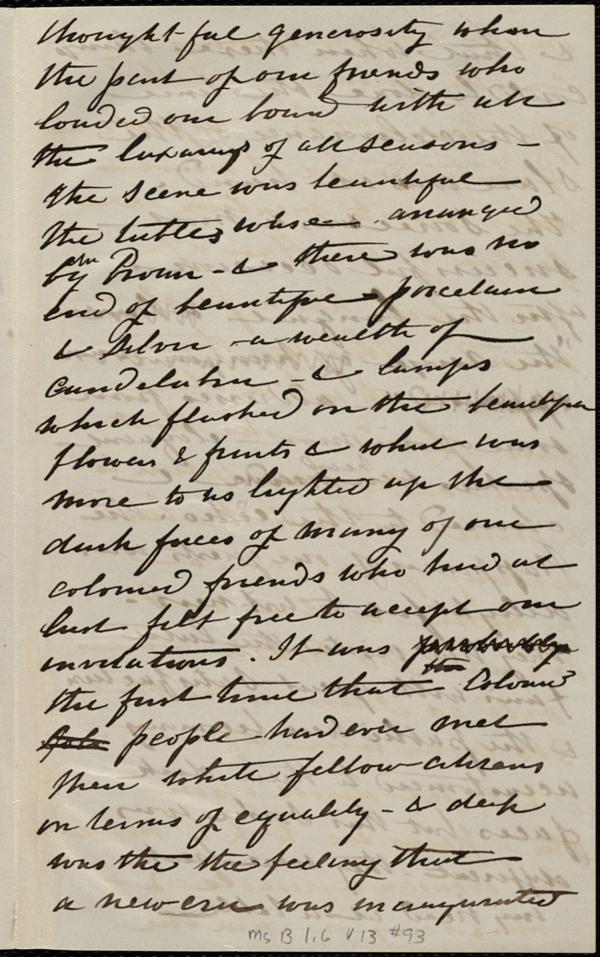 thoughtful generosity upon
the part of our friends who
loaded our board with all
the luxurys of all seasons -
the scene was beautiful
the tables were arranged
by Mr Brown - & there was no
end of beautiful porcelain
& silver - a wealth of
candelabra - & lamps
which flashed on the beautiful
flowers & fruits & what was
more to us lighted up the
dark faces of many of our
colored friends who had at
last felt free to accept our
invitations. It was probably
the first time that the Colored
folks people had ever met
their white fellow-citizens
on terms of equality - & deep
was the the feeling that
a new era was inaugurated
Ms B 1.6 V 13 #93